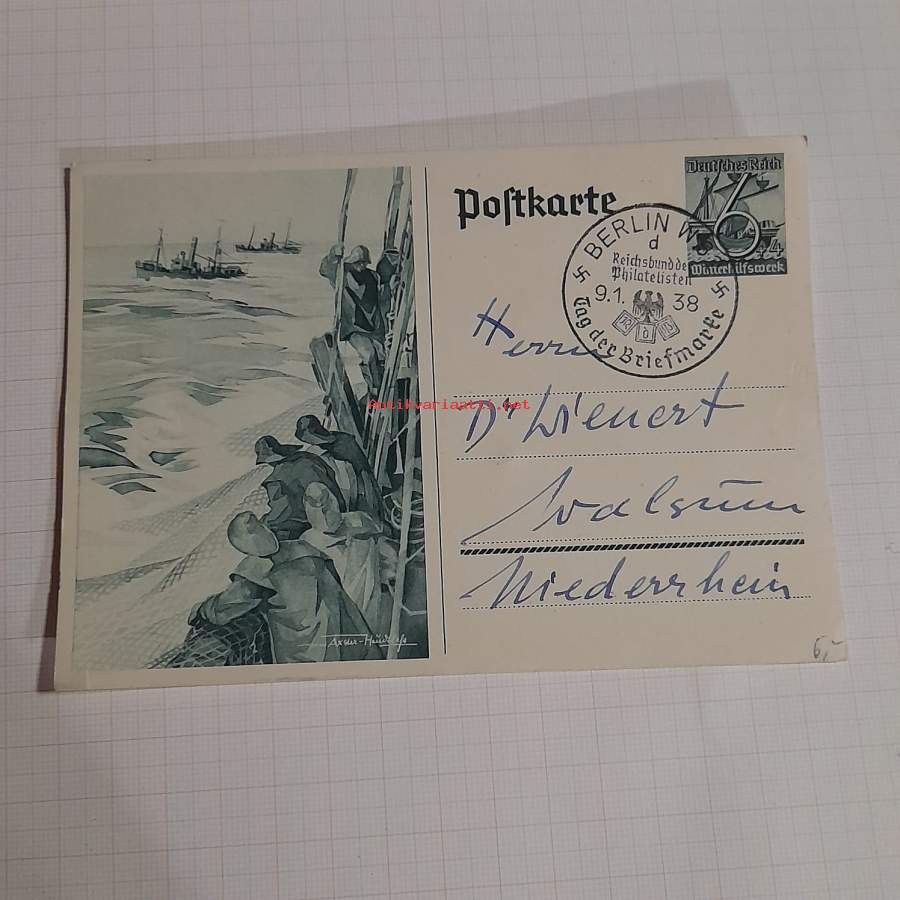 Postkarte
Deutsches Reich
6+4
Winterhilfswerk
BERLIN W
d
Reichsbund de
Philatelisten
9.1. 38
R D P
Tag der Briefmarke
Herrn
Dr Wienert
Walsum
Niederrhein
Antikvariaatti.net
Axster-Heudtlaß
6,-